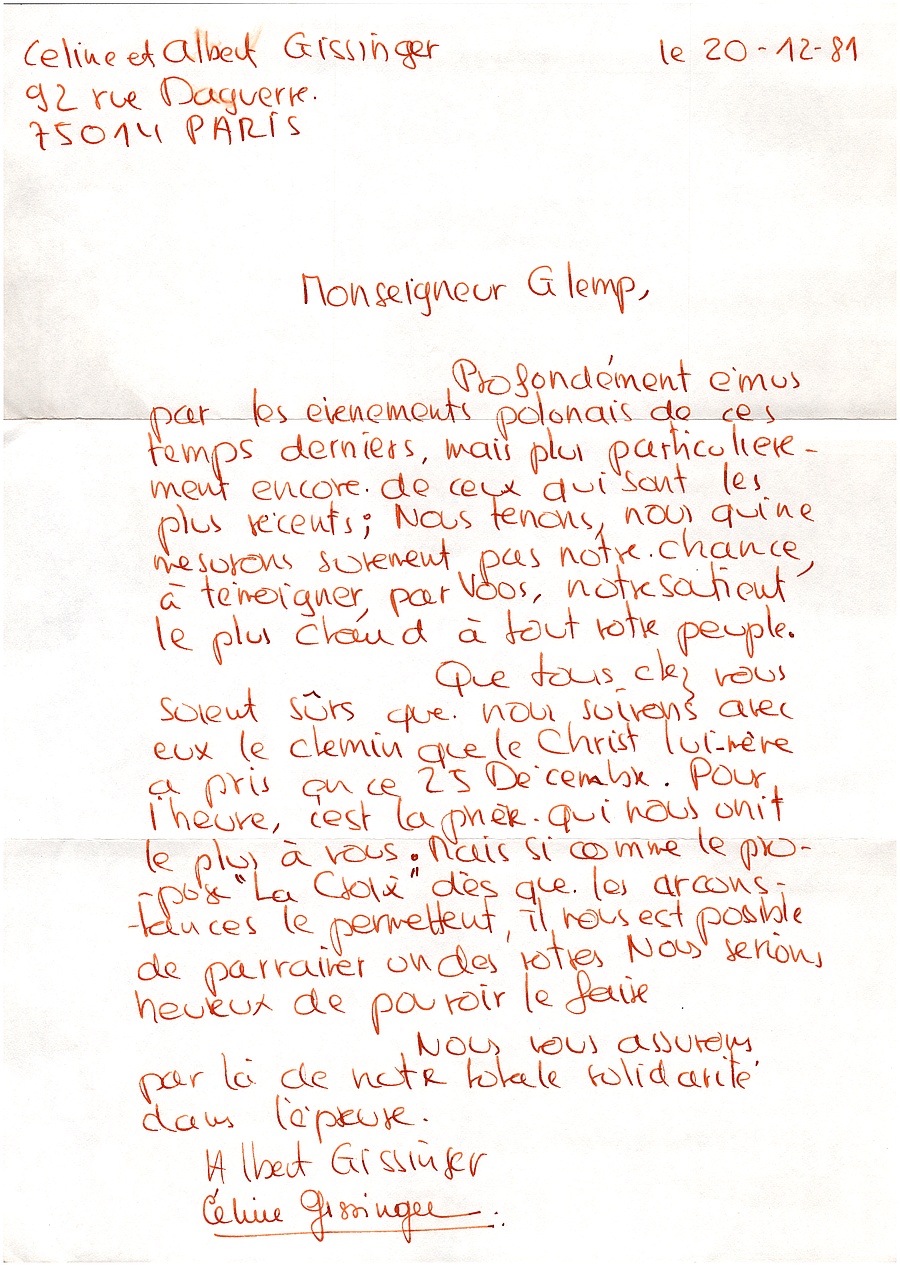 Celine et Albert Gissinger
le 20-12-81
92 rue Daguerre.
75014 PARIS
Monseigneur Glemp,
Profondément émus
par les evenements polonais de ces
temps derniers, mais plus particuliere-
ment encore. de ceux qui sont les
plus récents; Nous tenons, nous qui ne
mesurons surement pas notre. chance,
à témoigner, par Vous, notre soutient
le plus chaud à tout votre peuple.
Que tous chez vous
soient sûrs que. nous suivons avec
eux le chemin que le Christ lui-même
a pris en ce 25 Décembre. Pour
l'heure, c'est la prière. qui nous unit
le plus à vous. Mais si comme le pro-
-pose "La Croix" dès que. les circons-
-tances le permettent, il nous est possible
de parrainer un des votres Nous serions
heureux de pouvoir le faire
Nous vous assurons
par là de notre totale solidarité
dans l'épreuve.
Albert Gissinger
Céline Gissinger